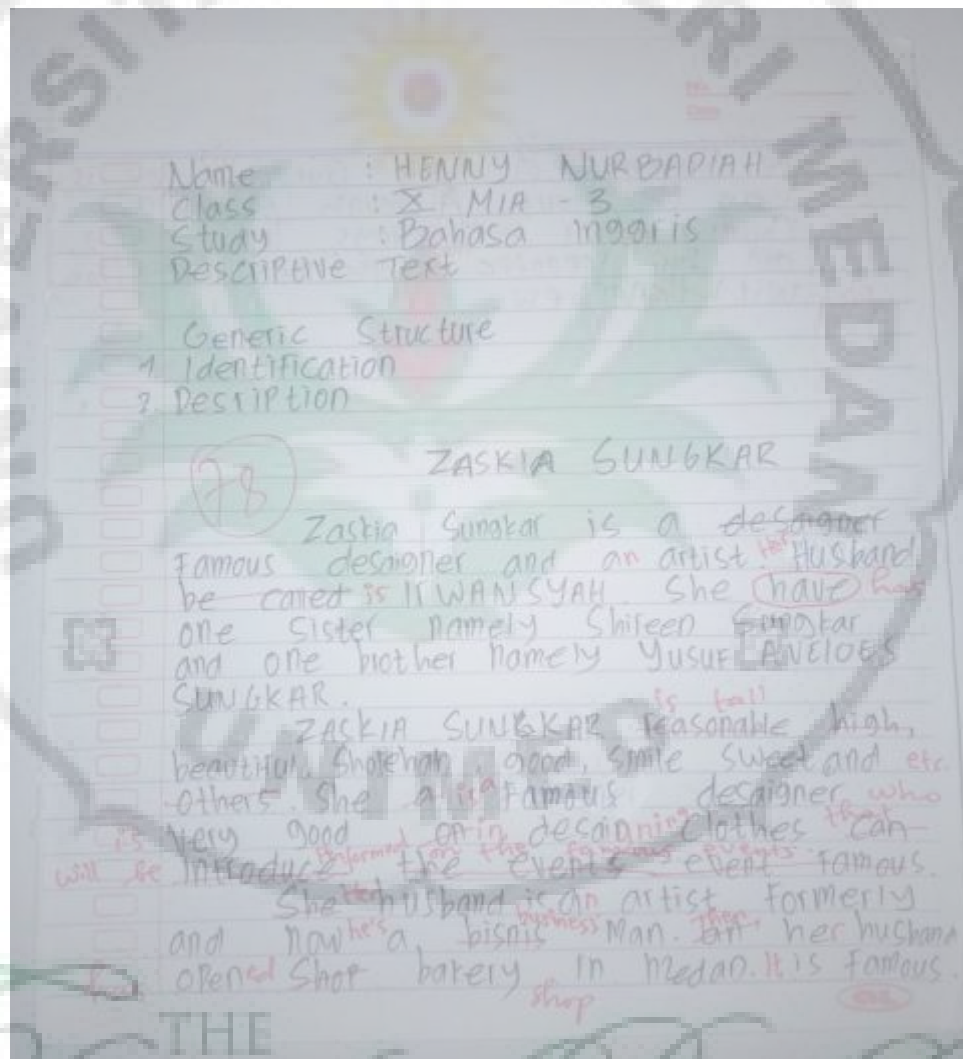 Name : HENNY NURBADIAH
Class : X MIA - 3
Study : Bahasa inggris
Descriptive Text
Generic Structure
1 Identification
2 Desription
78
ZASKIA SUNGKAR
Zaskia Sungkar is a desaigner
Famous desaigner and an artist. Her Husband
be called is IRWANSYAH. She have has
one sister namely Shireen Sungkar
and one brother namely YUSUF
SUNGKAR.
is tall
ZASKIA SUNGKAR reasonable high,
beautiful, Sholehah, good, smile sweet and etc
others. She a is a Famous desaigner who
is very good on in desaigning clothes that can
will be introduce informed on the famous events
the events event famous.
She Her husband is an artist formerly
and now he's a bisnis business Man. her husband
opened Shop bakery in medan. It is famous.
shop
THE
UNIMED
NEGERI MEDAN